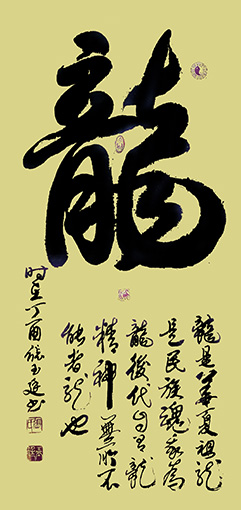 龍
龍是華夏祖龍
是民族魂我爲
龍後代自有龍
精神無所不
能者龍也
时至丁酉張玉廷书